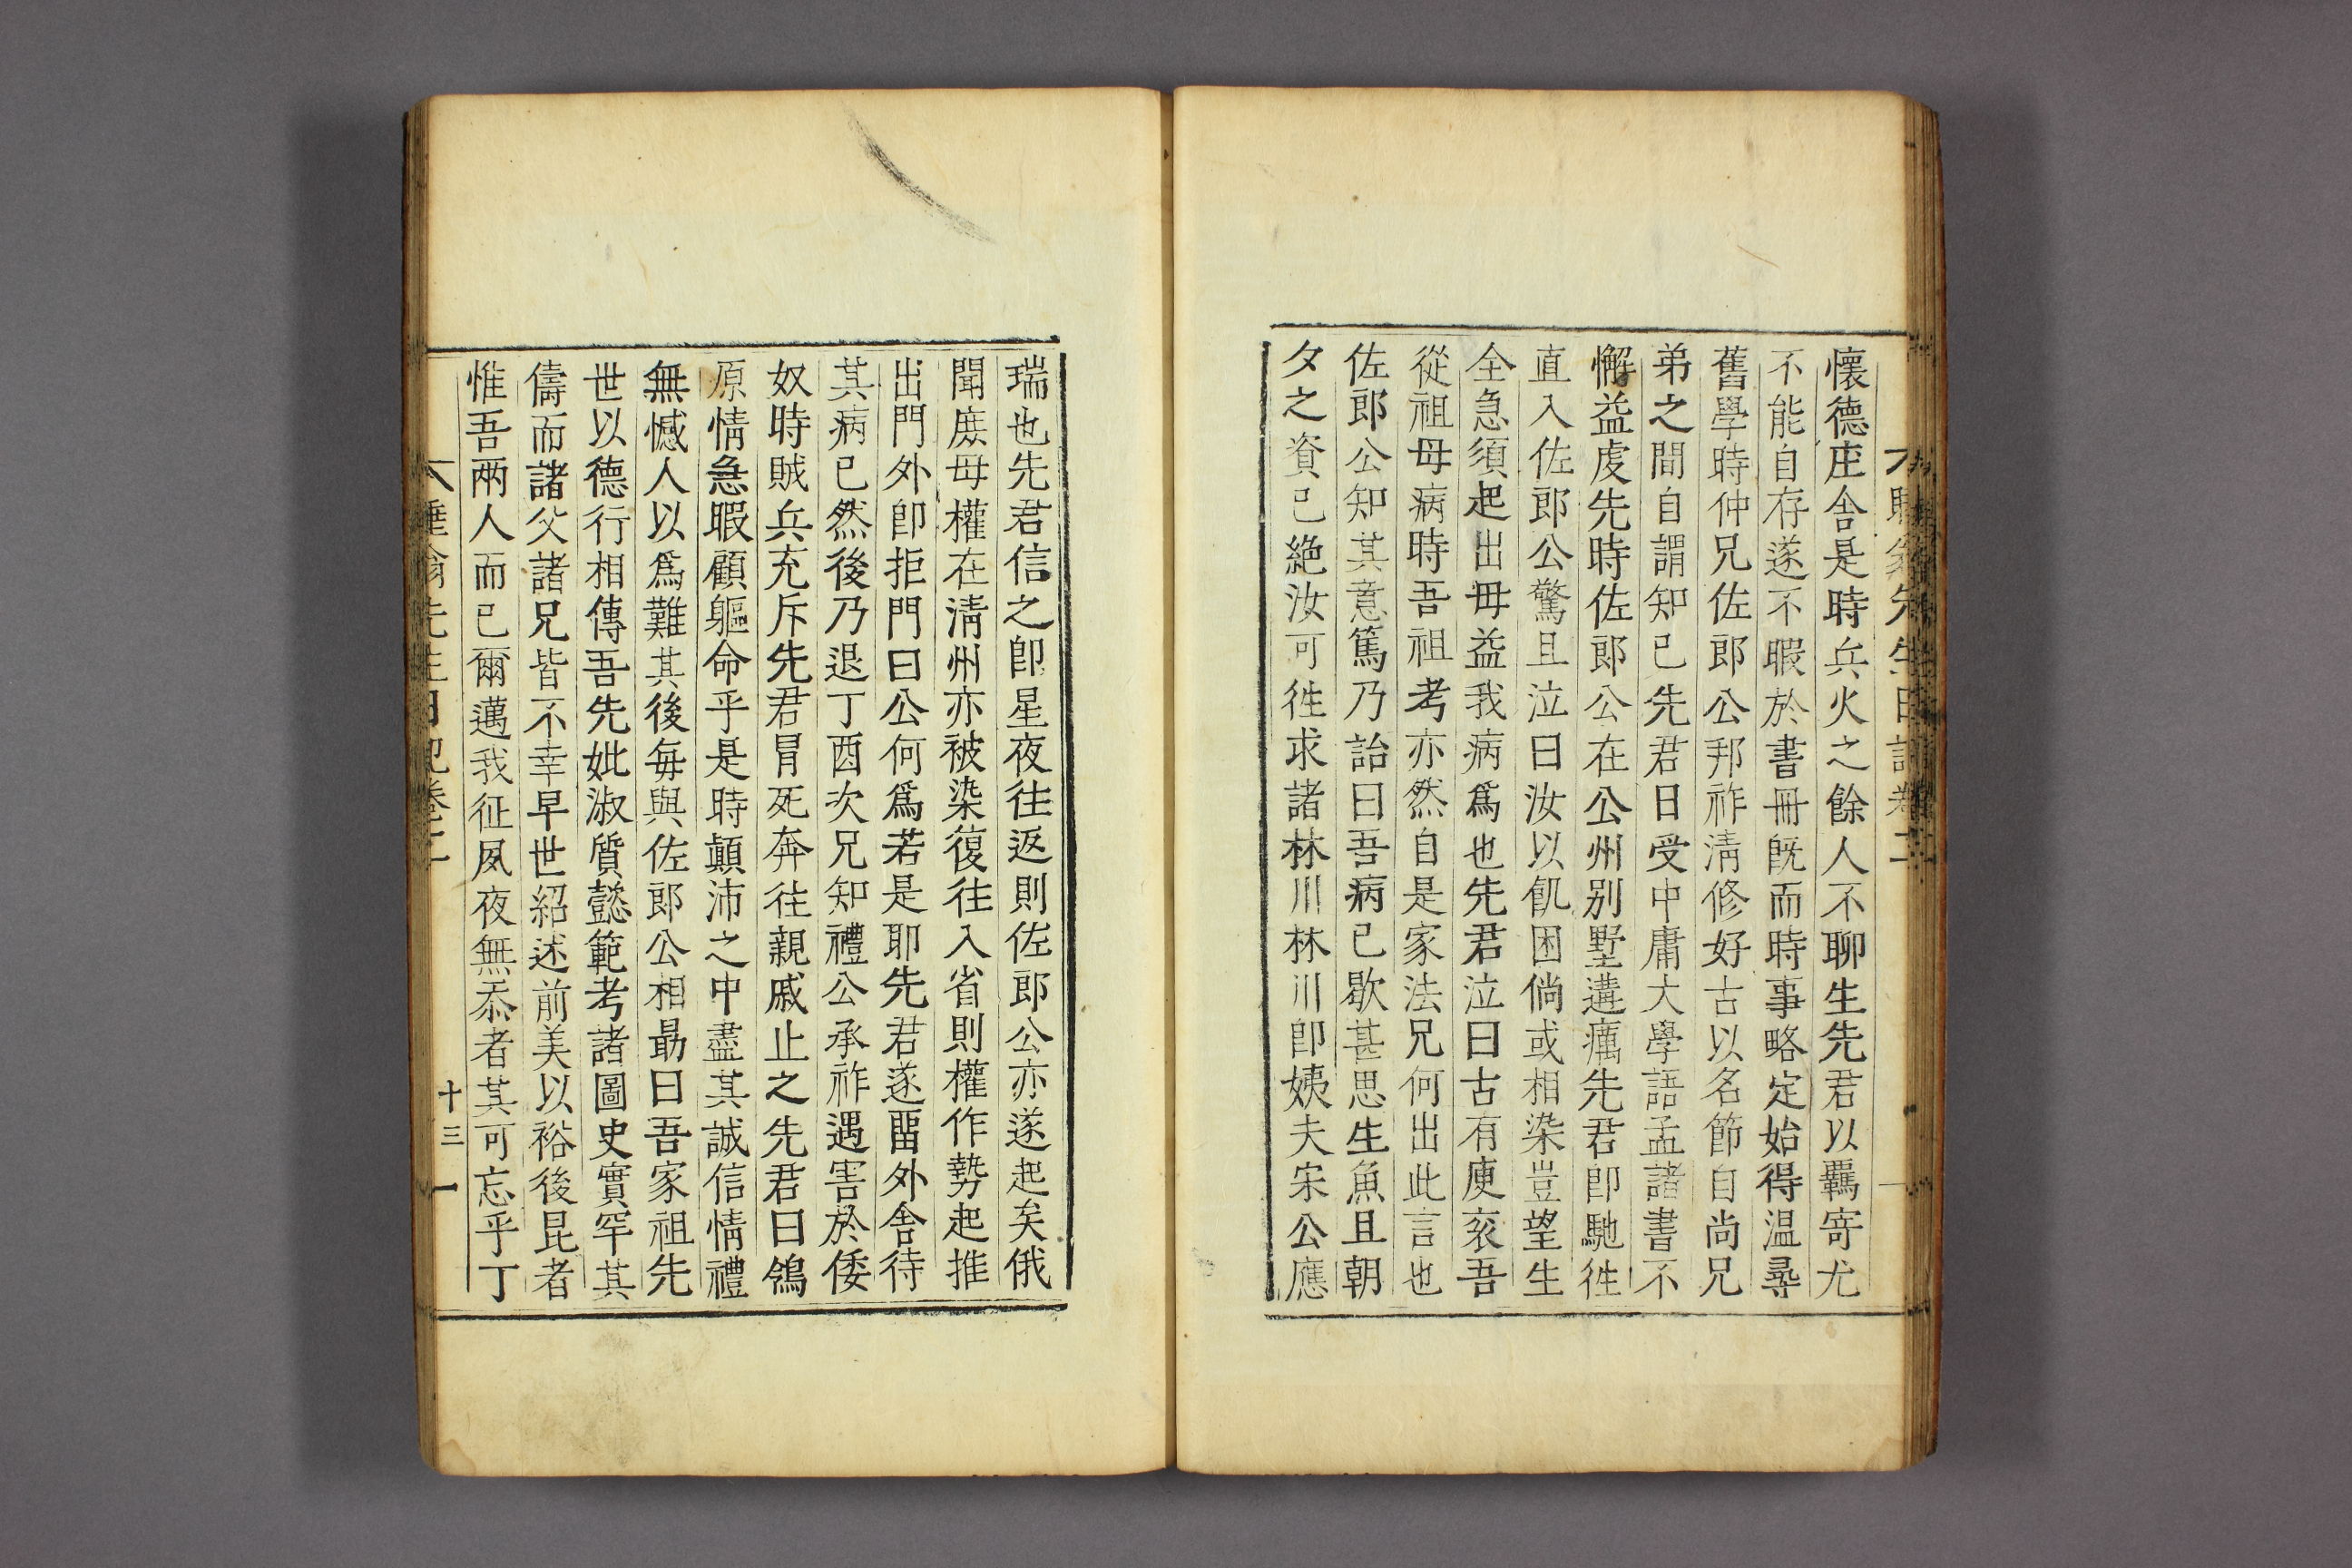 懷德庄舍是時兵火之餘人不聊生先君以羈寄尤
不能自存遂不暇於書冊旣而時事略定始得温尋
舊學時仲兄佐郎公邦祚淸修好古以名節自尚兄
弟之間自謂知已先君日受中庸大學語孟諸書不
懈益虔先時佐郎公在公州别墅遘癘先君卽馳徃
直入佐郎公驚且泣曰汝以飢困倘或相染豈望生
全急須起出毋益我病爲也先君泣曰古有庾衮吾
從祖母病時吾祖考亦然自是家法兄何出此言也
佐郎公知其意篤乃詒曰吾病已歇甚思生魚且朝
夕之資已絶汝可徃求諸林川林川卽姨夫宋公應
瑞也先君信之卽星夜往返則佐郎公亦遂起矣俄
聞庶母權在淸州亦被染復往入省則權作勢起推
出門外卽拒門曰公何爲若是耶先君遂留外舍待
其病已然後乃退丁酉次兄知禮公承祚遇害於倭
奴時賊兵充斥先君冒死奔往親戚止之先君曰鴒
原情急暇顧軀命乎是時顚沛之中盡其誠信情禮
無憾人以爲難其後每與佐郎公相勗曰吾家祖先
世以德行相傳吾先妣淑質懿範考諸圖史實罕其
儔而諸父諸兄皆不幸早世紹述前美以裕後昆者
惟吾兩人而已爾邁我征夙夜無忝者其可忘乎丁
睡翁先生日記卷二
十三